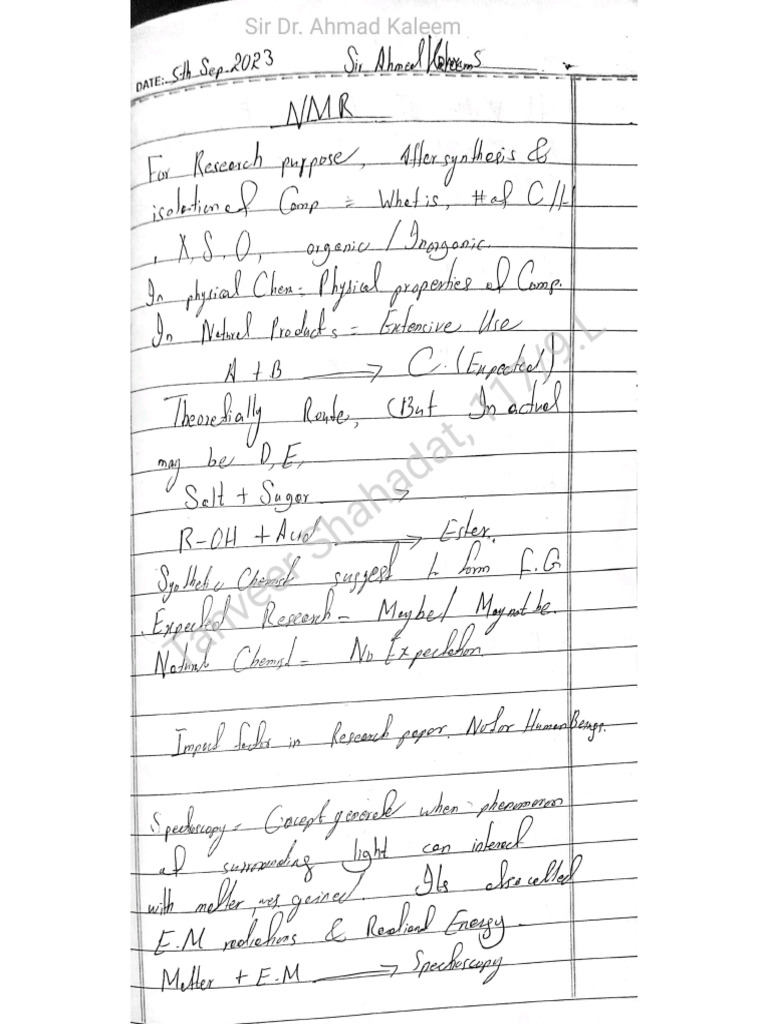 Sir Dr. Ahmad Kaleem
DATE: 5th Sep. 2023 Sir Ahmed
NMR
For Research purpose, After synthesis &
isolation of Comp = What is, # of C/H
, X, S, O, organic / Inorganic.
In physical Chem = Physical properties of Comp.
In Natural Products = Extensive Use
A + B → C. (Expected)
Theoretially Route, (But In actual
may be D, E,
Salt + Sugar →
R-OH + Acid → Ester.
Synthetic Chemist suggest to form F.G
Expected Research - Maybe/ May not be.
Natural Chemist = No Expectation.
Impact factor in Research paper. Not for Human Beings.
Spectroscopy = Concept generate when phenomenon
of surrounding light can interact
with matter, gained. Its also called
E.M radiations & Radiant Energy.
Matter + E.M → Spectroscopy
Tanveer Shahadat, 117/9.L